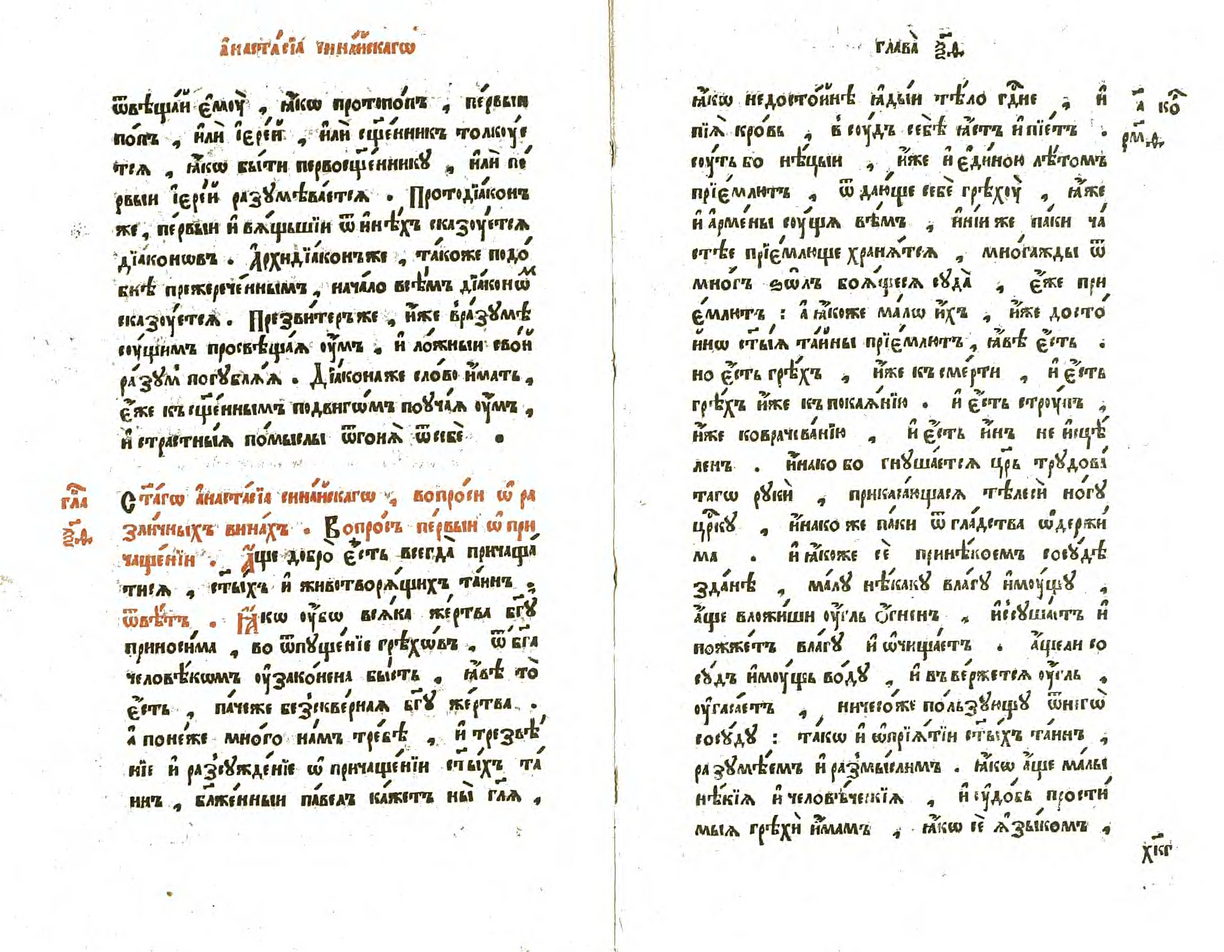 а҆наста́сїа сина́йскагѡ
ѿвѣща́й є҆моу̀ , ꙗ҆́кѡ протопо́пъ , пе́рвыи
по́пъ , и҆лѝ і҆ере́й , и҆лѝ сщ҃е́нникъ толкоуе
тсѧ , ꙗ҆́кѡ бы́ти первосщ҃е́ннику , и҆лѝ пе́
рвыи і҆ере́й разумѣва́етсѧ . Протодїа́конъ
же , пе́рвыи и҆ вѧ́щьшїи ѿ и҆нѣ́хъ сказоу́етсѧ
дїа́конѡвъ . А҆рхидїа́конъже , та́коже подо́
бнѣ прежерече́ннымъ , нача́ло всѣ́мъ дїа́конѡⷨ
сказоу́етсѧ . Презви́теръже , и҆́же вразумѣ́
соу́щимъ просвѣща́ѧ оу҆́мъ , и҆ ло́жныи сво́й
ра́зум̾ погублѧ́ѧ . Дїа́конаже сло́во и҆́мать ,
є҆́же къ сщ҃е́ннымъ по́двигѡмъ поуча́ѧ оу҆́мъ ,
и҆ стра́стныѧ по́мыслы ѿгонѧ̀ ѿ себѐ .
гла̑
ѯ҃ѳ.
С҃та́гѡ а҆наста́сїа сина́йскагѡ , вопро́си ѡ҆ ра
зли́чныхъ вина́хъ . Вопро́съ пе́рвыи ѡ҆ при
чаще́нїи . А҆́ще добро̀ є҆́сть всегда̀ причаща́
тисѧ , ст҃ы́хъ и҆ животворѧ́щихъ та́инъ ;
ѿвѣ́тъ . Ꙗ҆́кѡ оу҆́бѡ всѧ́ка же́ртва бг҃у
приноси́ма , во ѿпуще́нїе грѣхѡ́въ , ѿ бг҃а
человѣ́кѡмъ оу҆зако́нена бы́сть , ꙗ҆́вѣ то̀
є҆́сть , па́чеже безскве́рнаѧ бг҃у же́ртва .
а҆ поне́же мно́го на́мъ тре́бѣ , и҆ трезвѣ́
нїе и҆ разсужде́нїе ѡ҆ причаще́нїи ст҃ы́хъ та́
инъ , бл҃же́нныи па́велъ ка́жетъ ны̀ гл҃ѧ ,
глава̀ ѯ҃ѳ.
ꙗ҆́кѡ недосто́йнѣ ꙗ҆ды́и тѣ́ло гд҃не , и҆
пїѧ̀ кро́вь , в соу́дъ себѣ̀ ꙗ҆́стъ и҆ пїе́тъ .
а҃ ко̑
рм҃ѳ.
соу́ть бо нѣ́цыи , и҆́же и҆ є҆ди́ною лѣ́томъ
прїе́млютъ , ѿдаю́ще себѐ грѣхоу̀ , ꙗ҆́же
и҆ а҆рме́ны соу́щѧ вѣ́мъ , и҆ни́и же па́ки ча́
стѣе прїе́млюще хранѧ́тсѧ , мно́гажды ѿ
мно́гъ ѕѡ́лъ боѧ́щесѧ суда̀ , є҆́же при
е́млютъ : а҆ ꙗ҆́коже ма́лѡ и҆́хъ , и҆́же досто́
йнѡ ст҃ы́ѧ та́йны прїе́млютъ , ꙗ҆́вѣ є҆́сть .
но є҆́сть грѣ́хъ , и҆́же къ сме́рти , и҆ є҆́сть
грѣ́хъ и҆́же къ покаѧ́нїю . и҆ є҆́сть строу́пъ ,
и҆́же ко врачева́нїю , и҆ є҆́сть и҆́нъ не и҆сцѣ́
ленъ . и҆́нако бо гнуша́етсѧ цр҃ь трудова́
тагѡ рукѝ , прикаса́ющасѧ тѣлесѝ но́гу
цр҃ку , и҆́нако же па́ки ѿ гла́дства ѡ҆держи́
ма . и҆ ꙗ҆́коже сѐ при нѣ́коемъ сосу́дѣ
зда́нѣ , ма́лу нѣ́каку вла́гу и҆мꙋ́щу ,
а҆́ще вложи́ши оу҆́гль ѻ҆́гненъ , и҆ссуша́етъ и҆
пожже́тъ вла́гу и҆ ѡ҆чища́етъ . а҆́щели со
су́дъ и҆мꙋ́щь во́ду , и҆ въве́ржетсѧ оу҆́гль ,
оу҆гаса́етъ , ничесо́же по́льзующу ѿ негѡ̀
сосу́ду : та́кѡ и҆ ѡ҆ прїѧ́тїи ст҃ы́хъ та́инъ ,
разумѣ́емъ и҆ размы́слимъ . ꙗ҆́кѡ а҆́ще ма́лы
нѣ́кїѧ и҆ человѣ́ческїѧ , и҆ судо́бь прости́
мыѧ грѣхѝ и҆́мамъ , ꙗ҆́кѡ сѐ ѧ҆зы́комъ ,
х҃кг